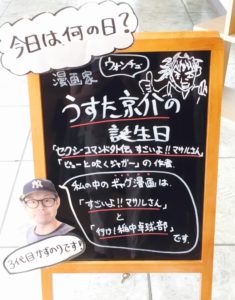 今日は何の日?
ウォンチュ
漫画家
うすた京介の
誕生日
「セクシーコマンドー外伝 すごいよ!!マサルさん」
「ピューと吹くジャガー」の作者
私の中のギャグ漫画は、
「すごいよ!!マサルさん」
と
「行け!稲中卓球部」
です。
3代目かずのりです!